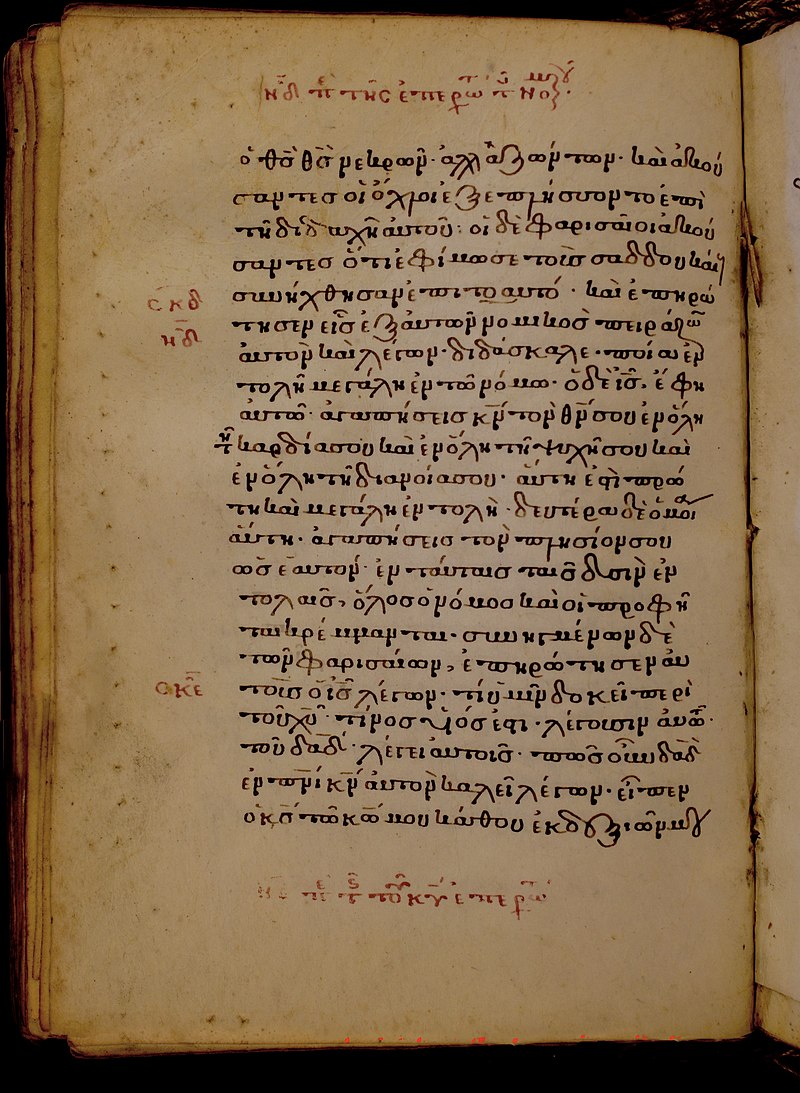 ὁ θσ̅ θσ̅ νεκρων· ἀλλὰ ζώντων· καὶ ἀκού
σαντες οἱ ὄχλοι ἐξεπλήσσοντο ἐπὶ
τῆ διδαχῆ αὐτοῦ· οἱ δὲ φαρισαῖοι ἀκού
σαντες ὅτι ἐφίμωσε τοὺς σαδδουκαί
συνήχθησαν ἐπιτοαυτό· καὶ ἐπηρώ
τησεν εἷς ἐξ αὐτῶν νομικὸς πειράζω
αὐτὸν καὶ λέγων· διδάσκαλε· ποία ἐν
τολὴ μεγάλη ἐν τῶ νόμω· ὁ δὲ ις̅, ἔφη
αὐτῶ· ἀγαπήσεις κν̅ τὸν θν̅ σου ἐν ὅλη
τῆ καρδία σου καὶ ἐν ὅλη τῆ ψυχῆ σου καὶ
ἐν ὅλη τῆ διανοία σου· αὕτη ἐστὶ πρώ
τη καὶ μεγάλη ἐντολὴ· δευτέρα δὲ ὁμοί
αὕτη· ἀγαπήσεις τὸν πλησίον σου
ὡς ἑαυτόν· ἐν ταύταις ταῖς δυσὶν ἐν
τολαῖς, ὅλος ὁ νόμος καὶ οἱ προφῆ
ται κρέμανται· συνηγμένων δὲ
τῶν φαρισαίων, ἐπηρώτησεν αὐ
τοὺς ὁ ις̅ λέγων· τί ὑμῖν δοκεῖ περὶ
τοῦ χυ̅· τίνος υἱός ἐστι· λέγουσιν αὐτῶ·
τοῦ δαδ̅· λέγει αὐτοῖς· πῶς οὖν δαδ̅
ἐν πνι̅ κν̅ αὐτὸν καλεῖ λέγων· εἶπεν
ὁ κς̅ τῶ κω̅ μου κάθου ἐκ δεξιῶν μου